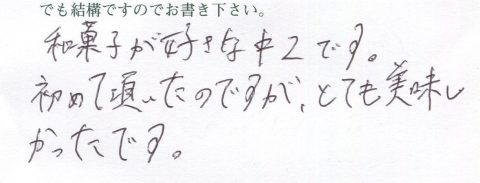 でも結構ですのでお書き下さい。
和菓子が好きな中2です。
初めて頂いたのですが、とても美味し
かったです。